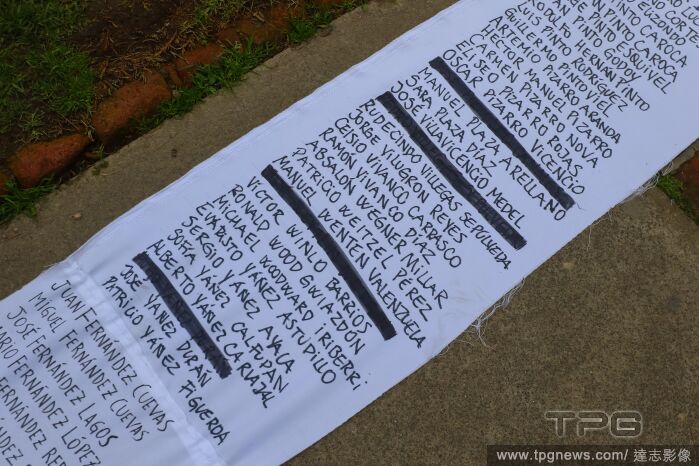 PINTO CAROCA
PINTO CAROCA
PINTO ESQUIVEL
HERNÁN PINTO
LUIS PINTO
GUILLERMO PINTO RODRÍGUEZ
ARTEMIO PIZARRO ARANDA
MANUEL PIZARRO
CARMEN PIZARRO NOVA
ELISEO PIZARRO ROJAS
OSCAR PIZARRO VICENCIO
MANUEL PLAZA ARELLANO
SARA PLAZA DÍAZ
JOSÉ VILLAVICENCIO MEDEL
RUDECINDO VILLEGAS SEPÚLVEDA
JORGE VILUGRÓN REYES
CELSO VIVANCO CARRASCO
RAMÓN VIVANCO DÍAZ
ABSALÓN WEGNER MILLAR
PATRICIO WEITZEL PÉREZ
MANUEL WENTEN VALENZUELA
VÍCTOR WINLO BARRIOS
RONALD WOOD GWIAZDON
MICHAEL WOODWARD IRIBERRI
EVARISTO YÁÑEZ ASTUDILLO
SERGIO YÁÑEZ AYALA
SOFÍA YÁÑEZ CALFUPAN
ALBERTO YÁÑEZ CARVAJAL
JOSÉ YÁÑEZ DURÁN
PATRICIO YÁÑEZ FIGUEROA
JUAN FERNÁNDEZ CUEVAS
MIGUEL FERNÁNDEZ CUEVAS
JOSÉ FERNÁNDEZ LAGOS
FERNÁNDEZ LÓPEZ
FERNÁNDEZ
TPG
www.tpgnews.com/ 達志影像